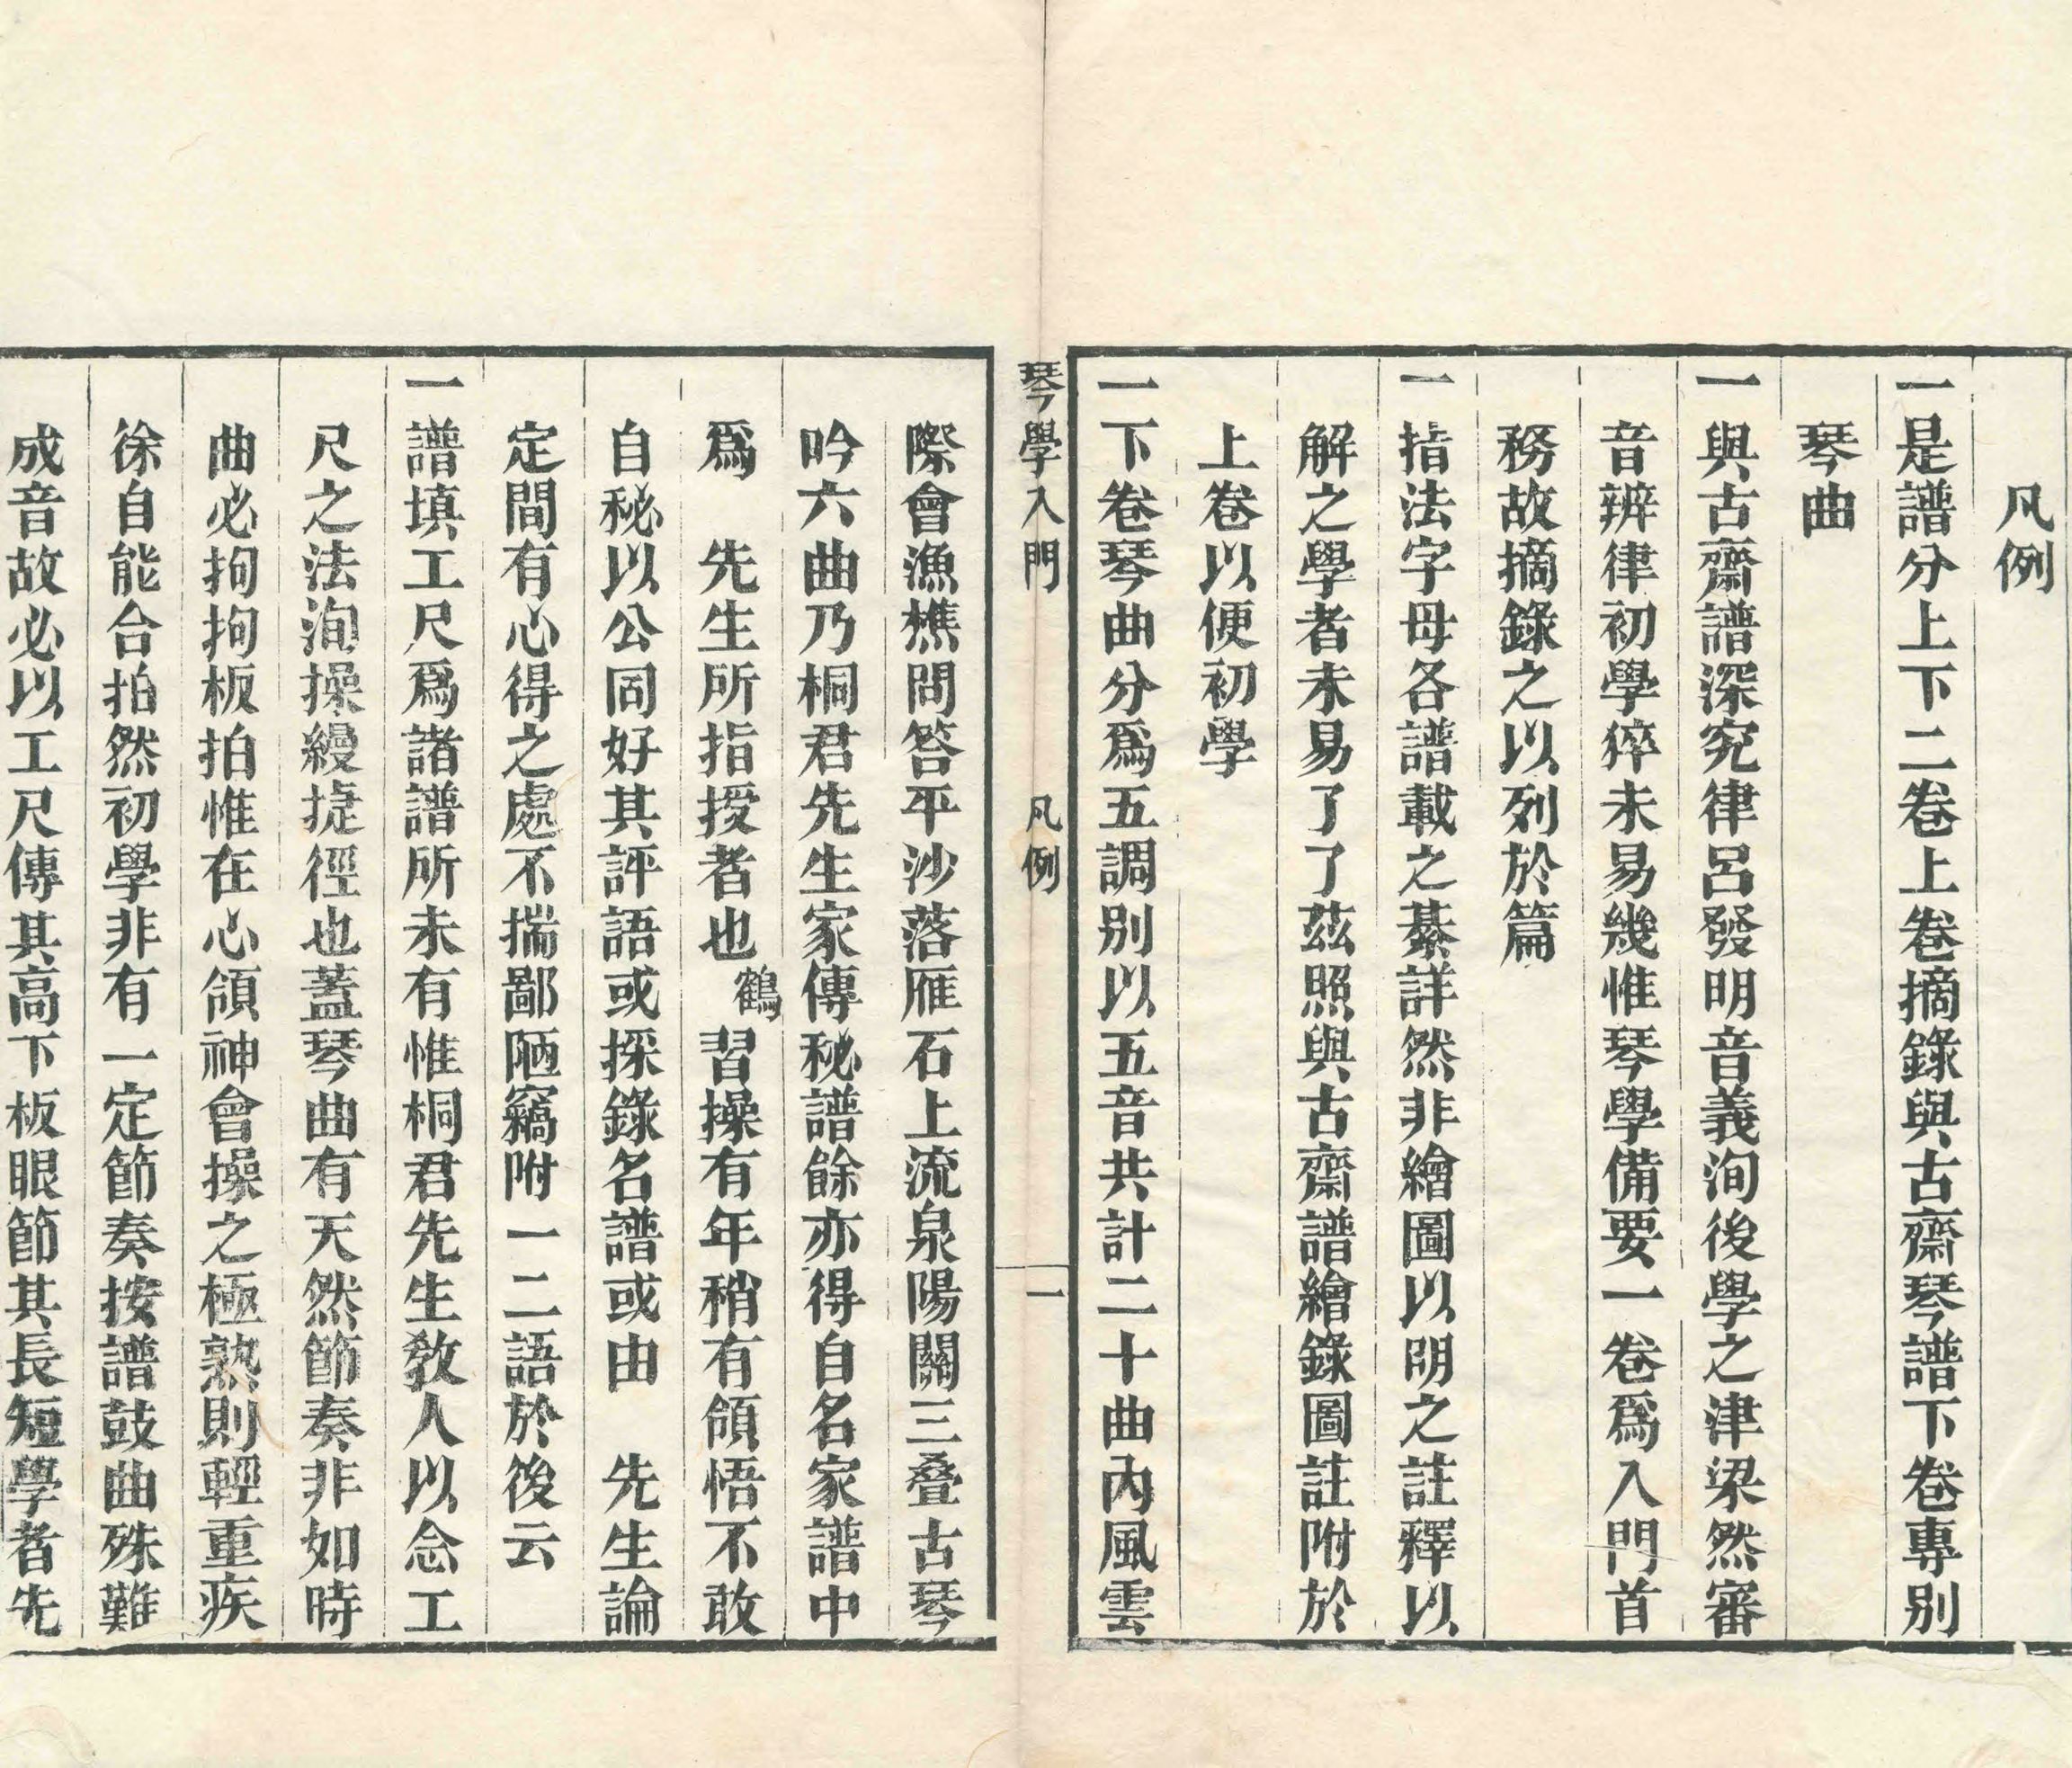 凡例
一是譜分上下二卷上卷摘錄與古齋琴譜下卷專別
琴曲
一與古齋譜深究律呂發明音義洵後學之津梁然審
音辨律初學猝未易幾惟琴學備要一卷爲入門首
務故摘錄之以列於篇
一指法字母各譜載之綦詳然非繪圖以明之註釋以
解之學者未易了了茲照與古齋譜繪錄圖註附於
上卷以便初學
一下卷琴曲分爲五調別以五音共計二十曲內風雲
琴學入門 凡例 一
際會漁樵問答平沙落雁石上流泉陽關三叠古琴
吟六曲乃桐君先生家傳秘譜餘亦得自名家譜中
爲 先生所指授者也鶴習操有年稍有領悟不敢
自秘以公同好其評語或採錄名譜或由 先生論
定間有心得之處不揣鄙陋竊附一二語於後云
一譜填工尺爲諸譜所未有惟桐君先生教人以念工
尺之法洵操縵捷徑也蓋琴曲有天然節奏非如時
曲必拘拘板拍惟在心領神會操之極熟則輕重疾
徐自能合拍然初學非有一定節奏按譜鼓曲殊難
成音故必以工尺傳其高下板眼節其長短學者先